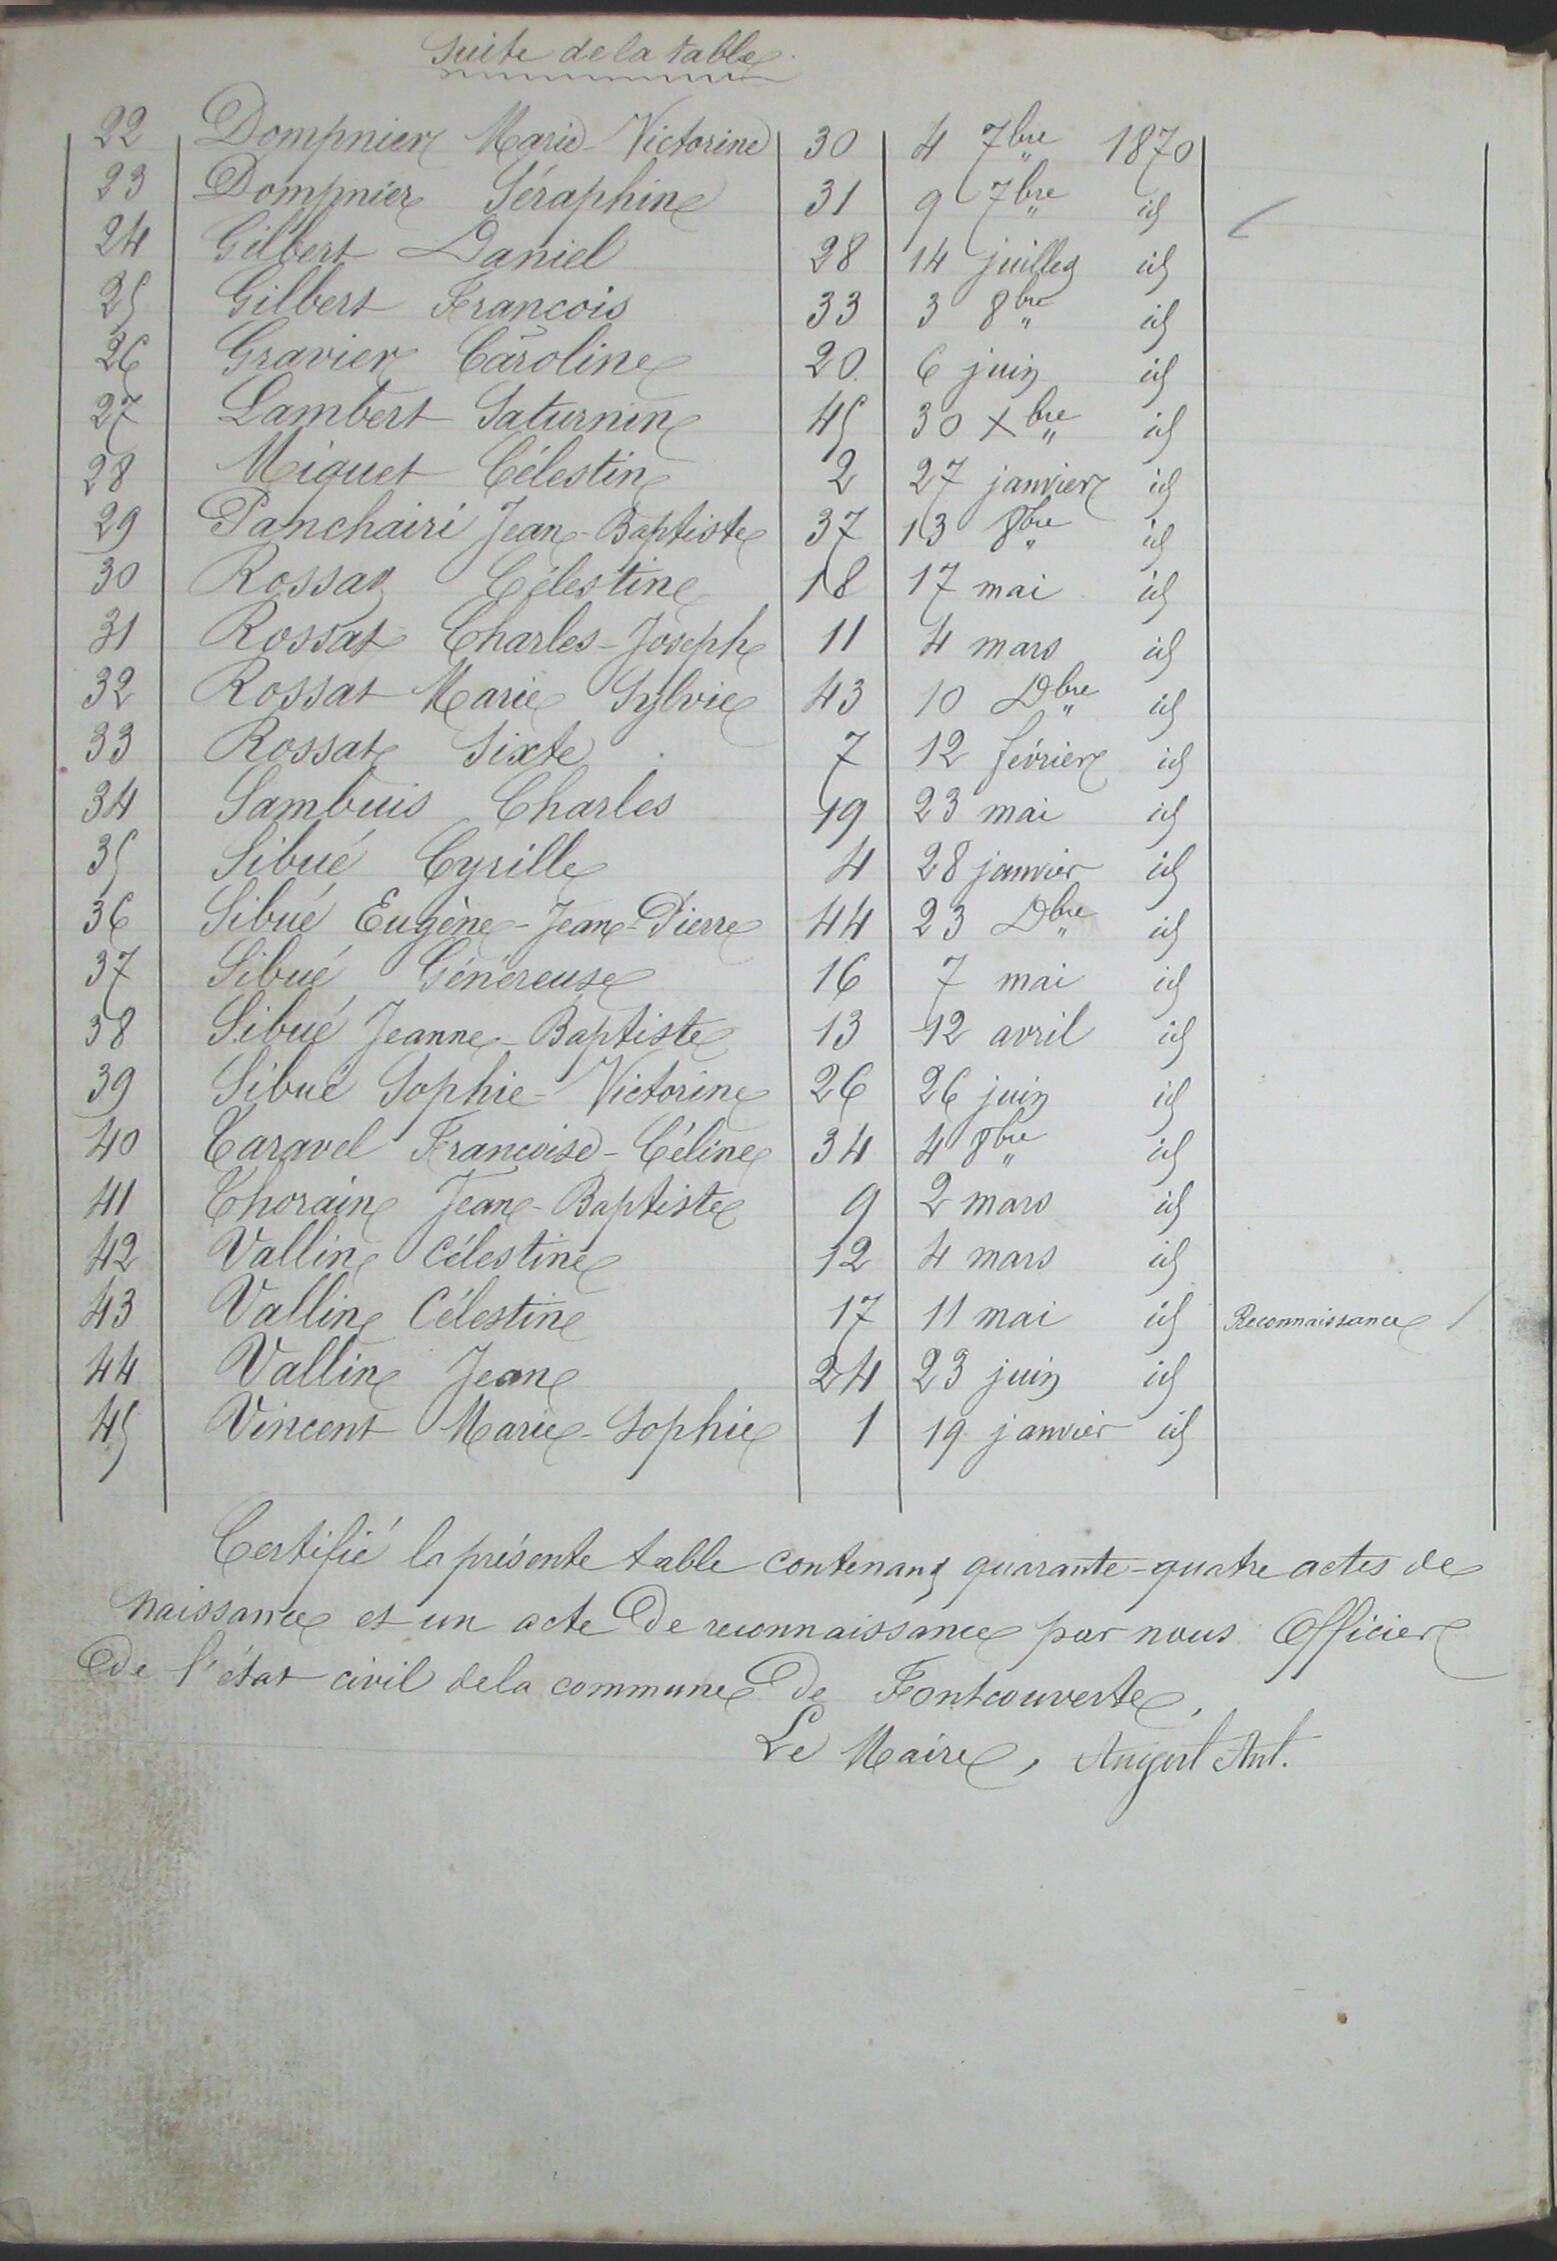 Suite de la table
22 Dompnier Marie-Victorine 30 4 7bre 1870
23 Dompnier Séraphine 31 9 7bre id
24 Gilbert Daniel 28 14 juillet id
25 Gilbert François 33 3 8bre id
26 Gravier Caroline 20 6 juin id
27 Lambert Saturnin 45 30 Xbre id
28 Miquet Célestin 2 27 janvier id
29 Panchairi Jean-Baptiste 37 13 8bre id
30 Rossat Célestine 18 17 mai id
31 Rossat Charles-Joseph 11 4 mars id
32 Rossat Marie Sylvie 43 10 Dbre id
33 Rossat Sixte 7 12 février id
34 Sambuis Charles 19 23 mai id
35 Sibué Cyrille 4 28 janvier id
36 Sibué Eugène-Jean-Pierre 44 23 Dbre id
37 Sibué Généreuse 16 7 mai id
38 Sibué Jeanne-Baptiste 13 12 avril id
39 Sibué Sophie-Victorine 26 26 juin id
40 Taravel Françoise-Céline 34 4 8bre id
41 Thorain Jean-Baptiste 9 2 mars id
42 Vallin Célestine 12 4 mars id
43 Vallin Célestin 17 11 mai id Reconnaissance
44 Vallin Jean 24 23 juin id
45 Vincent Marie-Sophie 1 19 janvier id
Certifié la présente table contenant quarante-quatre actes de
naissance et un acte de reconnaissance par nous Officier
de l'état civil de la commune de Fontcouverte,
Le Maire, Augert Ant.